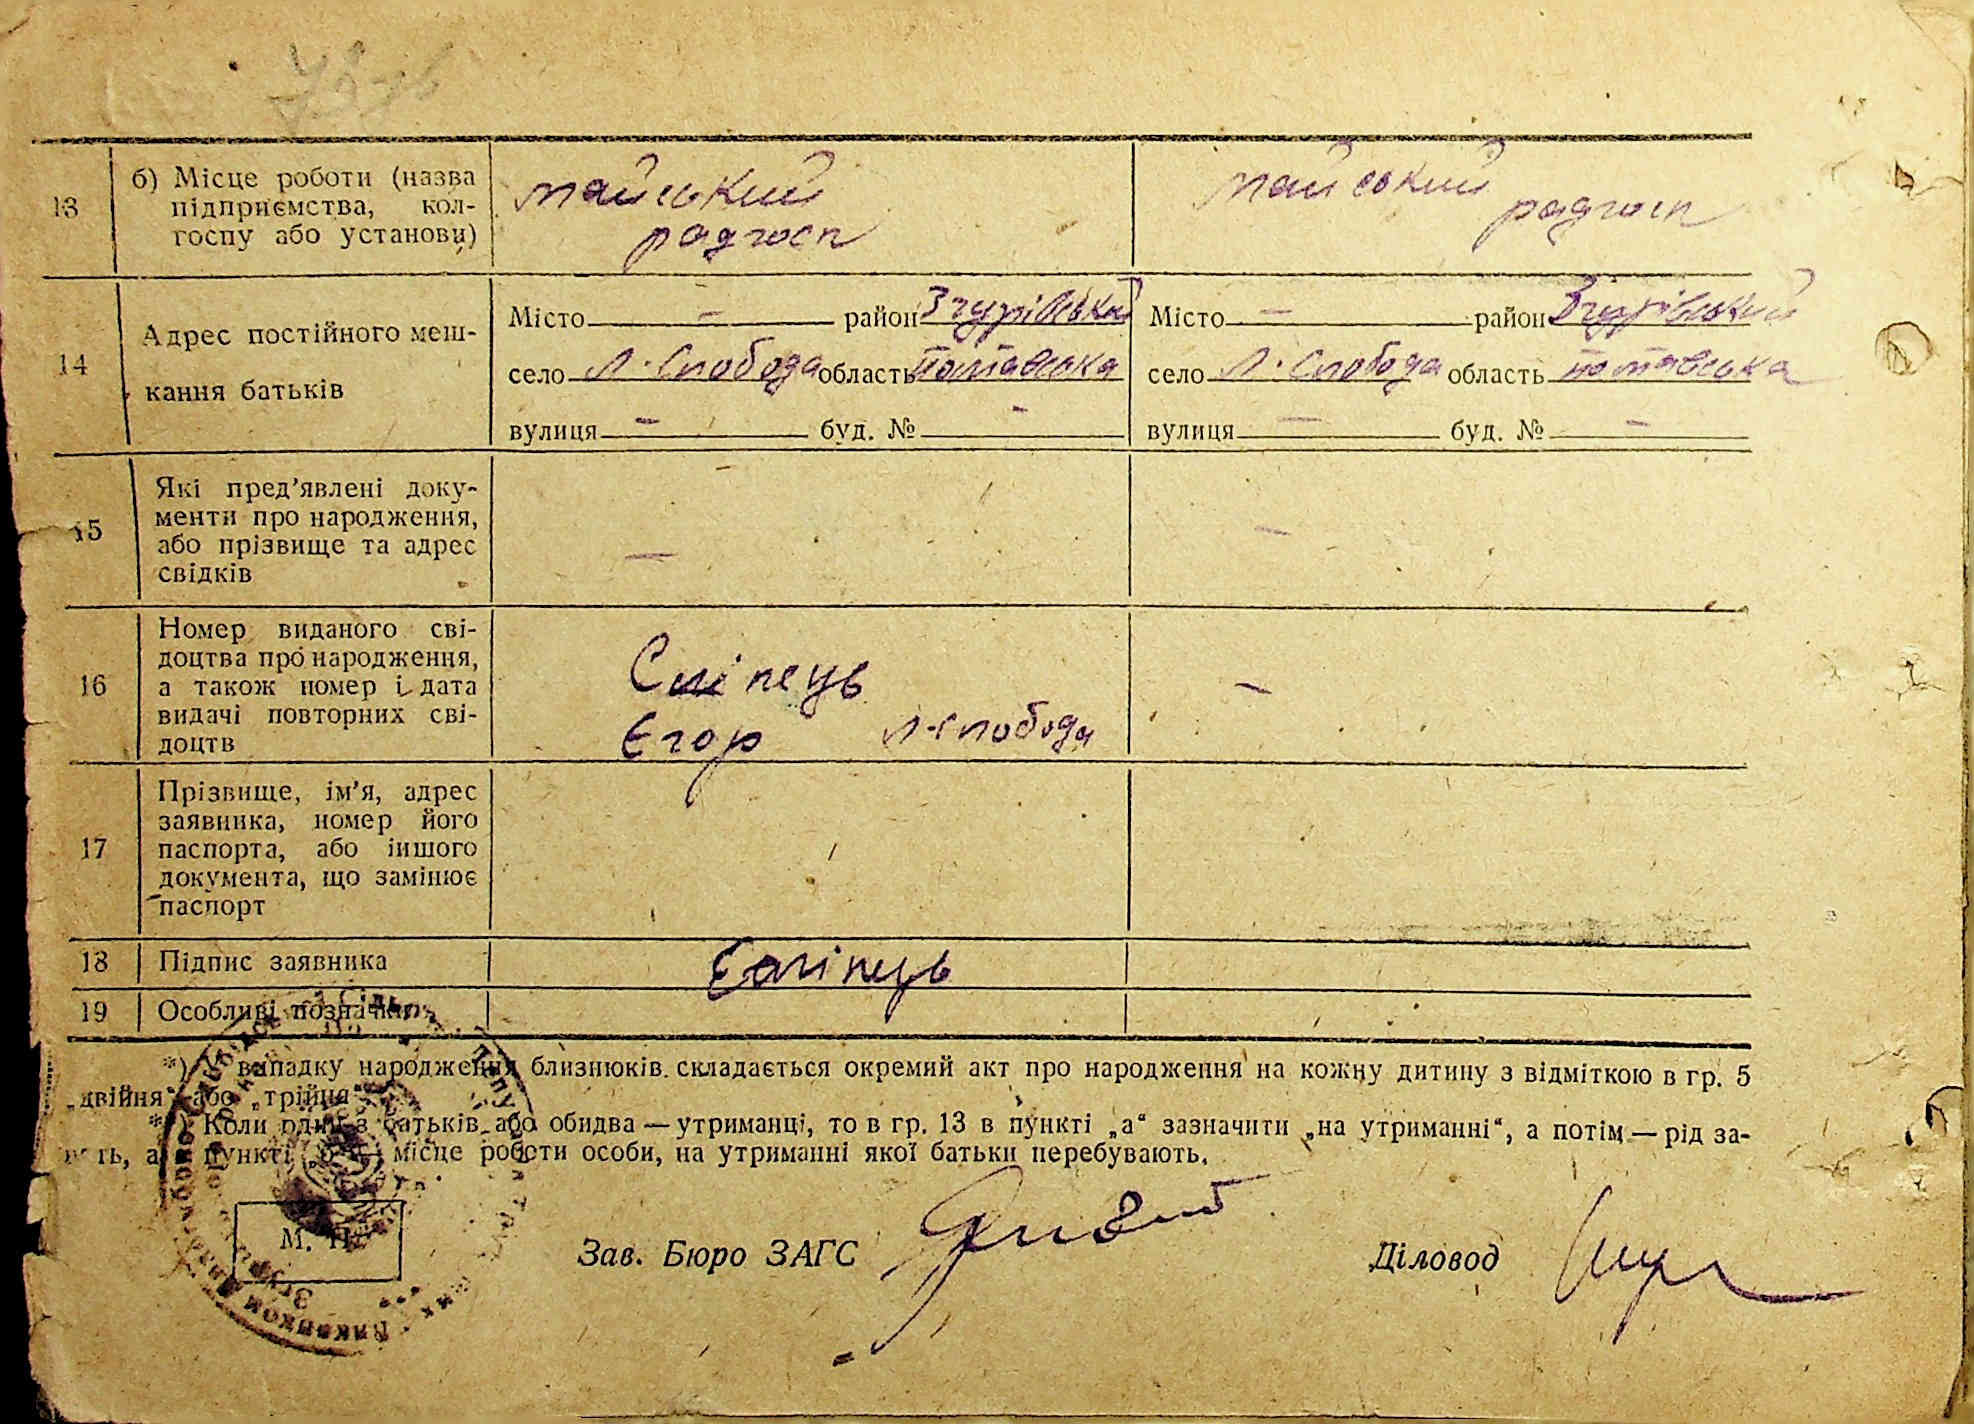 13
б) Місце роботи (назва
підприємства, кол-
госпу або установи)
майський
радгосп
майський
радгосп
14
Адрес постійного меш-
кання батьків
Місто — район Згурівський
село Л. Слобода область полтавська
вулиця — буд. № —
Місто — район Згурівський
село Л. Слобода область полтавська
вулиця — буд. № —
15
Які пред'явлені доку-
менти про народження,
або прізвище та адрес
свідків
—
—
16
Номер виданого сві-
доцтва про народження,
а також номер і дата
видачі повторних сві-
доцтв
Сліпець
Єгор Л-Слобода
—
17
Прізвище, ім'я, адрес
заявника, номер його
паспорта, або іншого
документа, що замінює
паспорт
18
Підпис заявника
Сліпець
19
Особливі позначки
*) випадку народження близнюків складається окремий акт про народження на кожну дитину з відміткою в гр. 5
„двійня" або „трійня"
*) Коли один з батьків або обидва — утриманці, то в гр. 13 в пункті „а" зазначити „на утриманні", а потім — рід за-
пункті місце роботи особи, на утриманні якої батьки перебувають.
М. П.
Зав. Бюро ЗАГС
Діловод